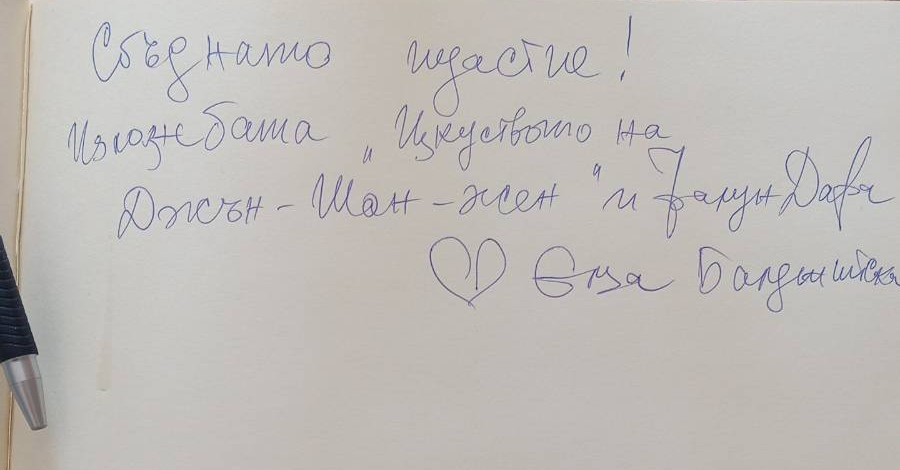 Сбъднато щастие!
Изложбата „Изкуството на
Джън-Шан-жен" и Фалун Дафа